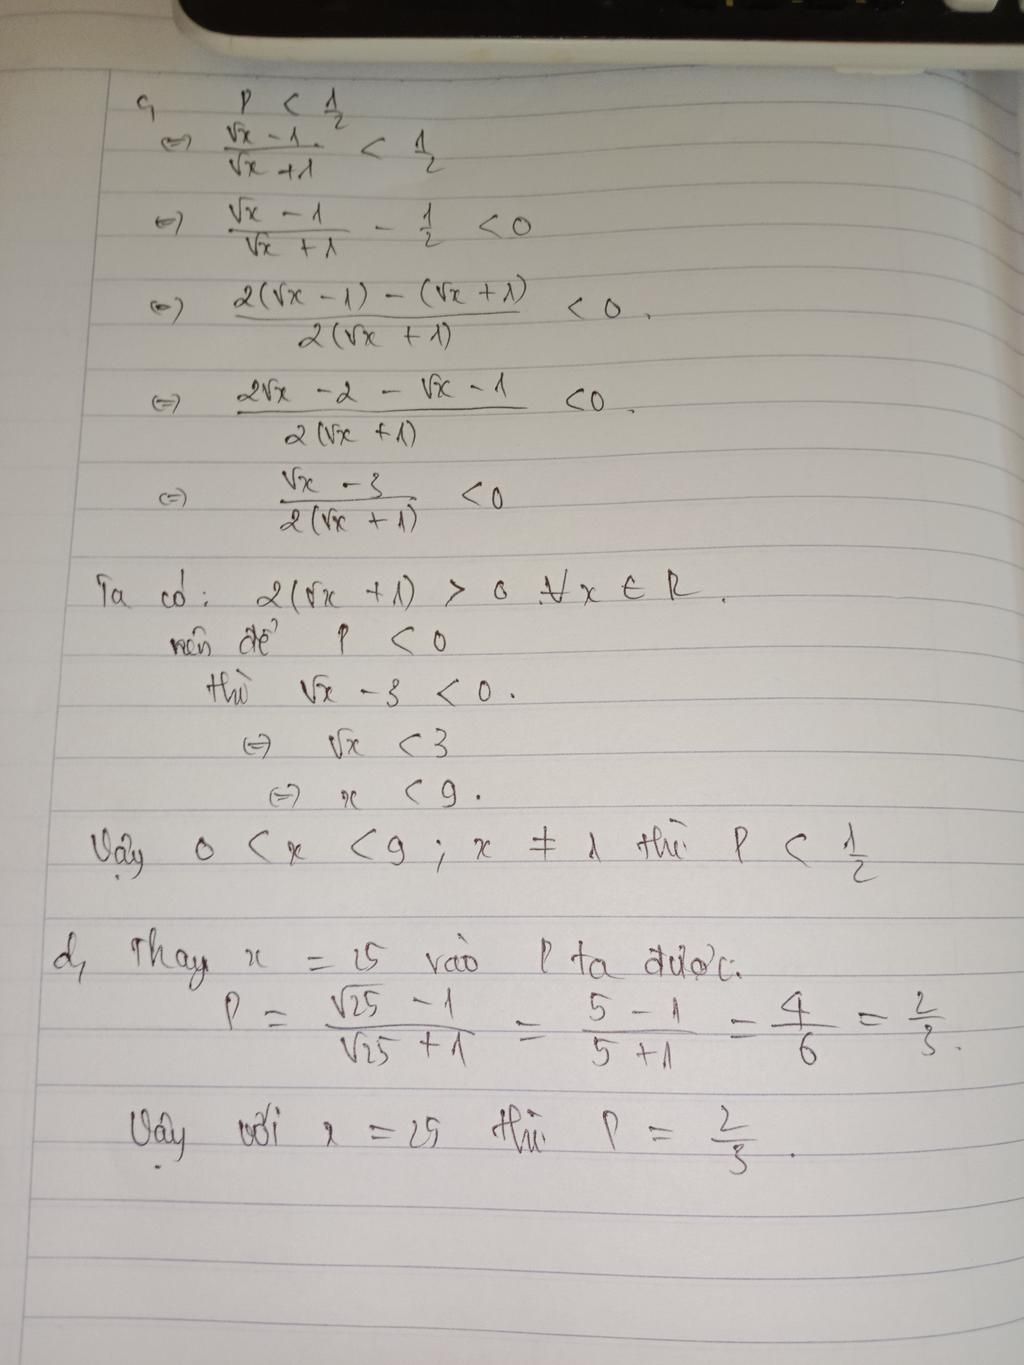 c, P < 1/2
⇔ (√x - 1)/(√x + 1) < 1/2
⇔ (√x - 1)/(√x + 1) - 1/2 < 0
⇔ (2(√x - 1) - (√x + 1))/(2(√x + 1)) < 0.
⇔ (2√x - 2 - √x - 1)/(2(√x + 1)) < 0.
⇔ (√x - 3)/(2(√x + 1)) < 0
Ta có: 2(√x + 1) > 0 ∀x ∈ R.
nên để P < 0
thì √x - 3 < 0.
⇔ √x < 3
⇔ x < 9.
Vậy 0 < x < 9 ; x ≠ 1 thì P < 1/2
d, Thay x = 25 vào P ta được:
P = (√25 - 1)/(√25 + 1) = (5 - 1)/(5 + 1) = 4/6 = 2/3.
Vậy với x = 25 thì P = 2/3.